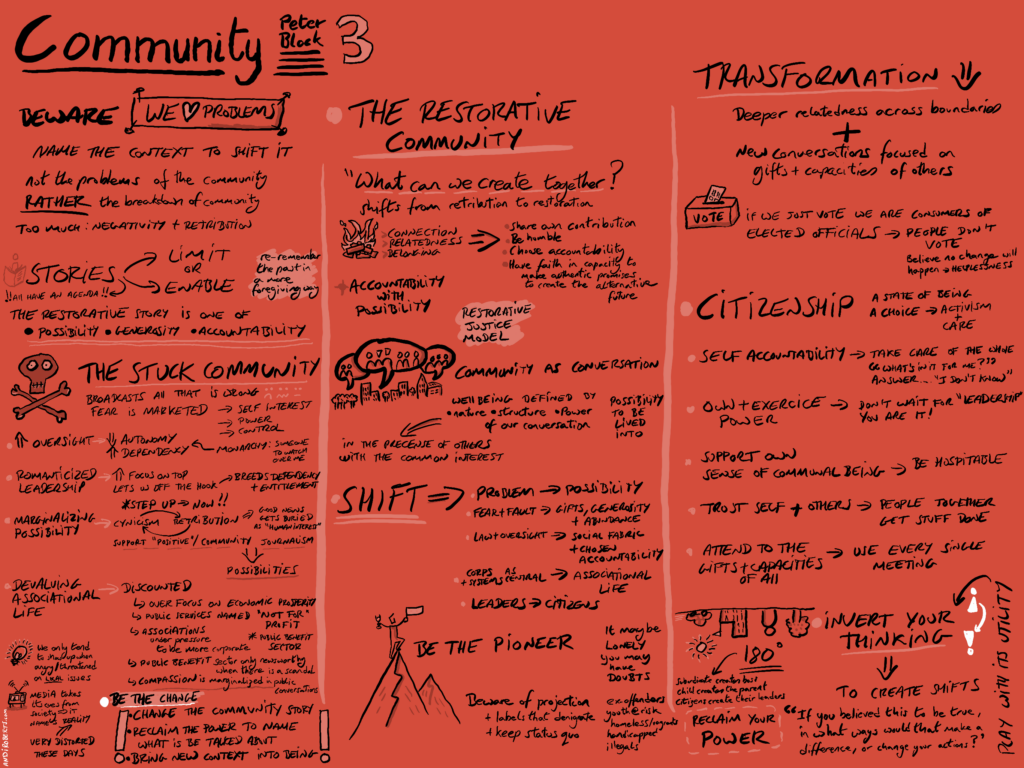 Community
Peter
Block
3
BEWARE
WE ♥ PROBLEMS
NAME THE CONTEXT TO SHIFT IT
not the problems of the community
RATHER the breakdown of community
TOO MUCH: NEGATIVITY + RETRIBUTION
STORIES
LIMIT
OR
ENABLE
!!All HAVE AN AGENDA!!
re-remember
the past in
a more
foregiving way
THE RESTORATIVE STORY IS ONE OF
• POSSIBILITY • GENEROSITY • ACCOUNTABILITY
THE STUCK COMMUNITY
BROADCASTS ALL THAT IS WRONG
FEAR IS MARKETED → SELF INTEREST
→ POWER
→ CONTROL
OVERSIGHT → AUTONOMY
DEPENDENCY
MONARCH: SOMEONE
TO WATCH
OVER ME
ROMANTICIZED
LEADERSHIP
→ FOCUS ON TOP
LETS US OFF THE HOOK
→ BREEDS DEPENDENCY
+ ENTITLEMENT
*STEP UP → NOW!!
MARGINALIZING
POSSIBILITY
→ CYNICISM RETRIBUTION
→ GOOD NEWS
GETS BURIED
AS "HUMAN INTEREST"
SUPPORT "POSITIVE"/COMMUNITY JOURNALISM
POSSIBILITIES
DEVALUING
ASSOCIATIONAL
LIFE
→ DISCOUNTED
↳ OVER FOCUS ON ECONOMIC PROSPERITY
↳ PUBLIC SERVICES NAMED "NOT FOR"
PROFIT
* PUBLIC BENEFIT
SECTOR
↳ ASSOCIATIONS
under pressure
to be more corporate
↳ PUBLIC BENEFIT sector only newsworthy
when there is a scandal
↳ COMPASSION is marginalized in public
conversations
We only tend
to show up when
angry/threatened
on local issues
MEDIA takes
its cues from
society → it
names REALITY
VERY DISTORTED
THESE DAYS
• BE THE CHANGE
• CHANGE THE COMMUNITY STORY
• RECLAIM THE POWER TO NAME
WHAT IS BE TALKED ABOUT
• BRING NEW CONTEXT INTO BEING
ANDIROBERTS.COM
THE RESTORATIVE
COMMUNITY
"What can we create together?
shifts from retribution to restoration
CONNECTION
RELATEDNESS
BELONGING
• Share own contribution
• Be humble
• Choose accountability
• Have faith in capacity to
make authentic promises
to create the alternative
future
+ ACCOUNTABILITY
WITH
POSSIBILITY
RESTORATIVE
JUSTICE
MODEL
COMMUNITY AS CONVERSATION
WELLBEING DEFINED BY
• nature • structure • Power
of our conversation
POSSIBILITY
TO BE
LIVED
INTO
IN THE PRECENSE OF OTHERS
WITH THE COMMON INTEREST
SHIFT ⇒
• PROBLEM → POSSIBILITY
• FEAR + FAULT → GIFTS, GENEROSITY
+ ABUNDANCE
• LAW + OVERSIGHT → SOCIAL FABRIC
+ CHOSEN
ACCOUNTABILITY
• CORPS AS
+ SYSTEMS CENTRAL → ASSOCIATIONAL
LIFE
• LEADERS → CITIZENS
BE THE PIONEER
It may be
LONELY
you may
have
DOUBTS
Beware of projection
+ labels that denigrate
+ keep status quo
ex. offenders
youth @ risk
homeless/
handicapped
illegals
TRANSFORMATION
Deeper relatedness across boundaries
+
New conversations focused on
gifts + capacities of others
VOTE
IF WE JUST VOTE WE ARE CONSUMERS OF
ELECTED OFFICIALS → PEOPLE DON'T
VOTE
Believe no change will
happen → HELPLESSNESS
CITIZENSHIP
A STATE OF BEING
A CHOICE → ACTIVISM
+
CARE
SELF ACCOUNTABILITY → TAKE CARE OF THE WHOLE
"WHAT'S IN IT FOR ME?"??
ANSWER... "I DON'T KNOW"
OWN + EXERCICE
POWER
→ DON'T WAIT FOR "LEADERSHIP"
YOU ARE IT!
SUPPORT OWN
SENSE OF COMMUNAL BEING → BE HOSPITABLE
TRUST SELF + OTHERS → PEOPLE TOGETHER
GET STUFF DONE
ATTEND TO THE
GIFTS + CAPACITIES
OF All
→ USE EVERY SINGLE
MEETING
180°
Subordinate creates boss
child creates the parent
citizens create their leaders
RECLAIM YOUR
POWER
INVERT YOUR
THINKING
TO CREATE SHIFTS
"If you believed this to be true,
in what ways would that make a
difference, or change your actions?"
PLAY WITH ITS UTILITY